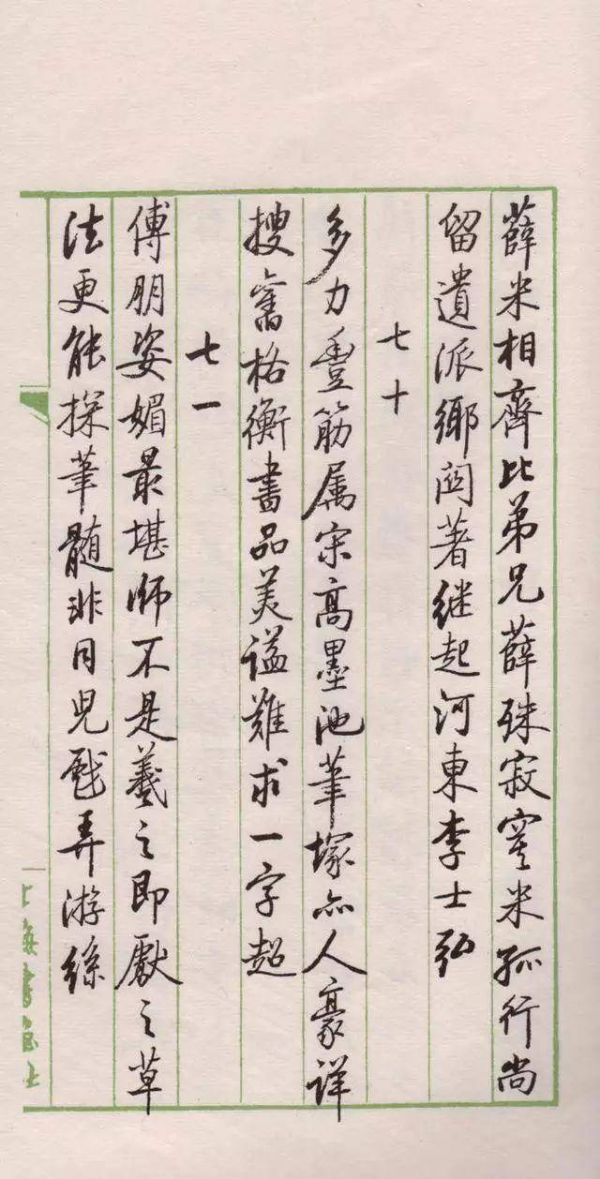 薛米相齊比弟兄薛殊寂寞米孤行尚
留遺派鄉関著継起河東李士弘
七十
多力豊筋属宋高墨池筆塚亦人豪詳
搜舊格衡書品美謚難求一字超
七一
傅朋姿媚最堪師不是羲之即獻之草
法更能探筆髄非同兒戲弄游絲
上海書畫社